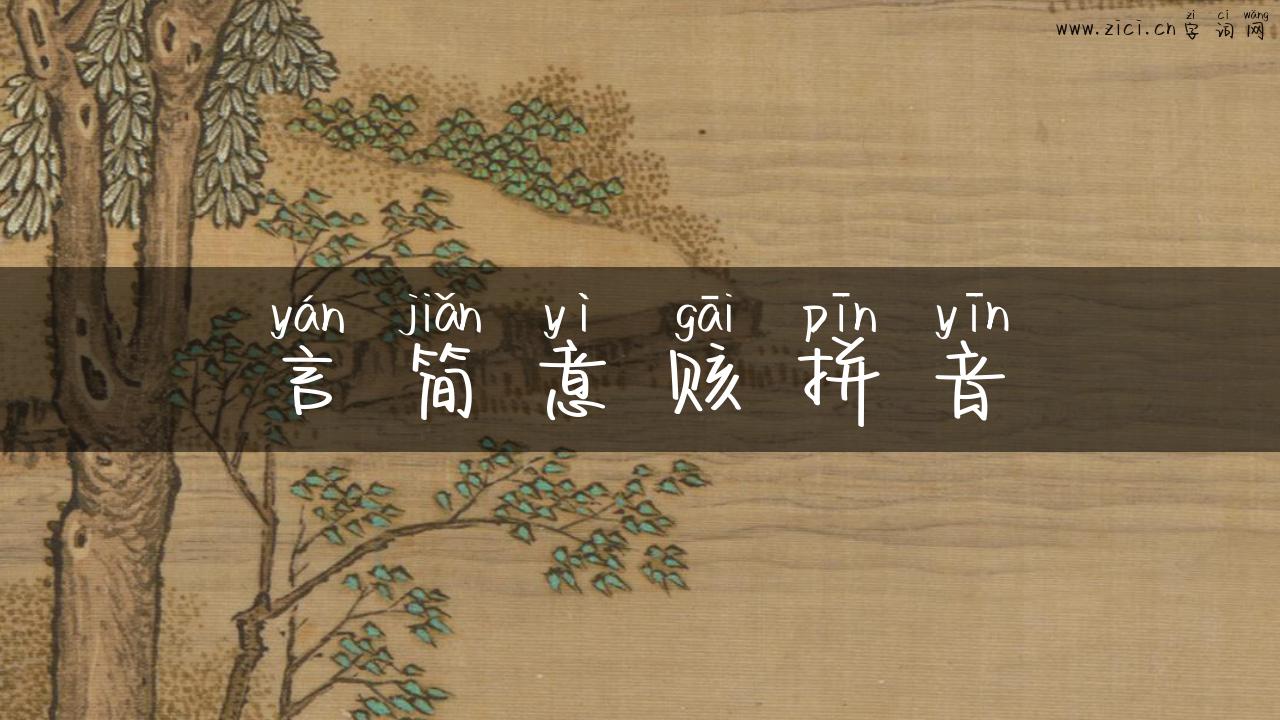 zì cí wǎng
www.zici.cn 字词网
yán jiǎn yì gāi pīn yīn
言简意赅拼音